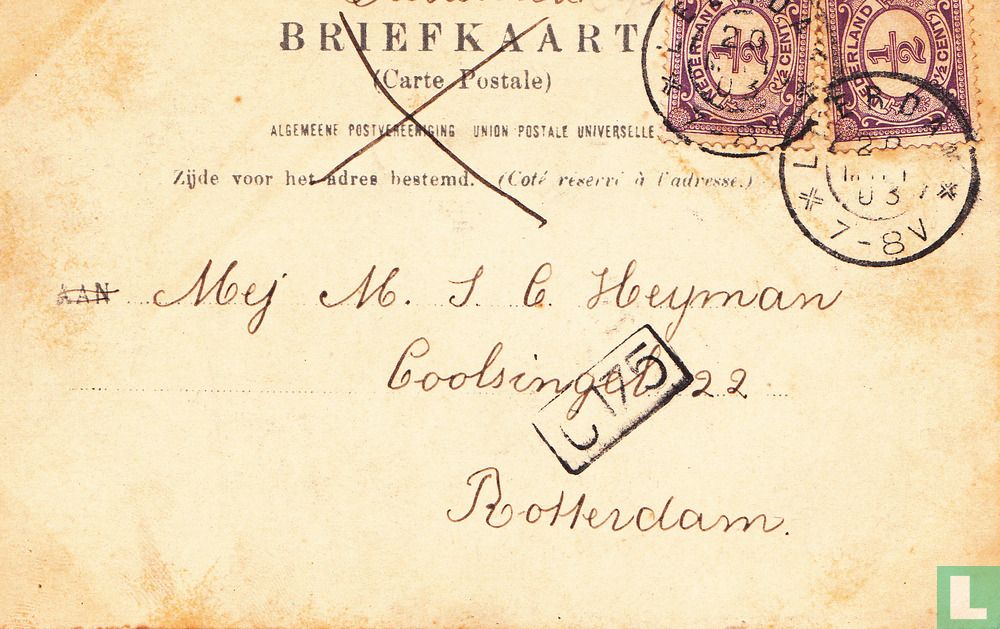 BRIEFKAART
(Carte Postale)
ALGEMEENE POSTVEREENIGING UNION POSTALE UNIVERSELLE
Zijde voor het adres bestemd. (Coté réservé à l'adresse.)
NEDERLAND
½
½ CENT
NEDERLAND
½
½ CENT
LEERDAM
20
03
LEERDAM
20
03
7-8V
AAN Mej M. S. C. Heyman
Coolsingel 22
C 175
Rotterdam.
L